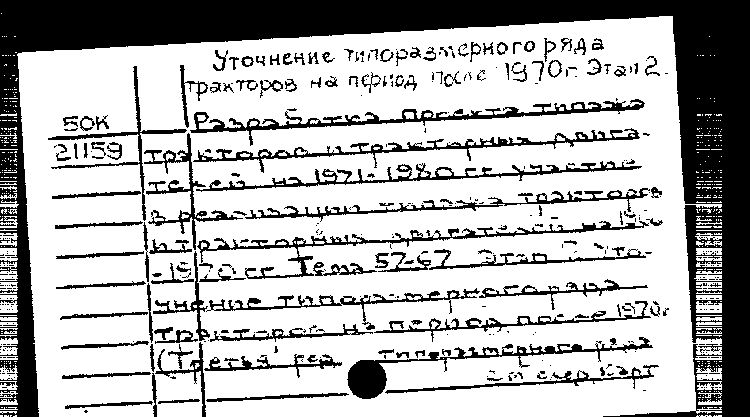 Уточнение типоразмерного ряда
тракторов на период после 1970г. Этап 2.
БОК Разработка проекта типажа
21159 тракторов и тракторных двига-
телей на 1971-1980 гг. участие
в реализации типажа тракторов
и тракторных двигателей на 1966
-1970 гг. Тема 57-67 Этап 2 Уто-
чнение типоразмерного ряда
тракторов на период после 1970г.
(Третья ред. типоразмерного ряда
см след. карт